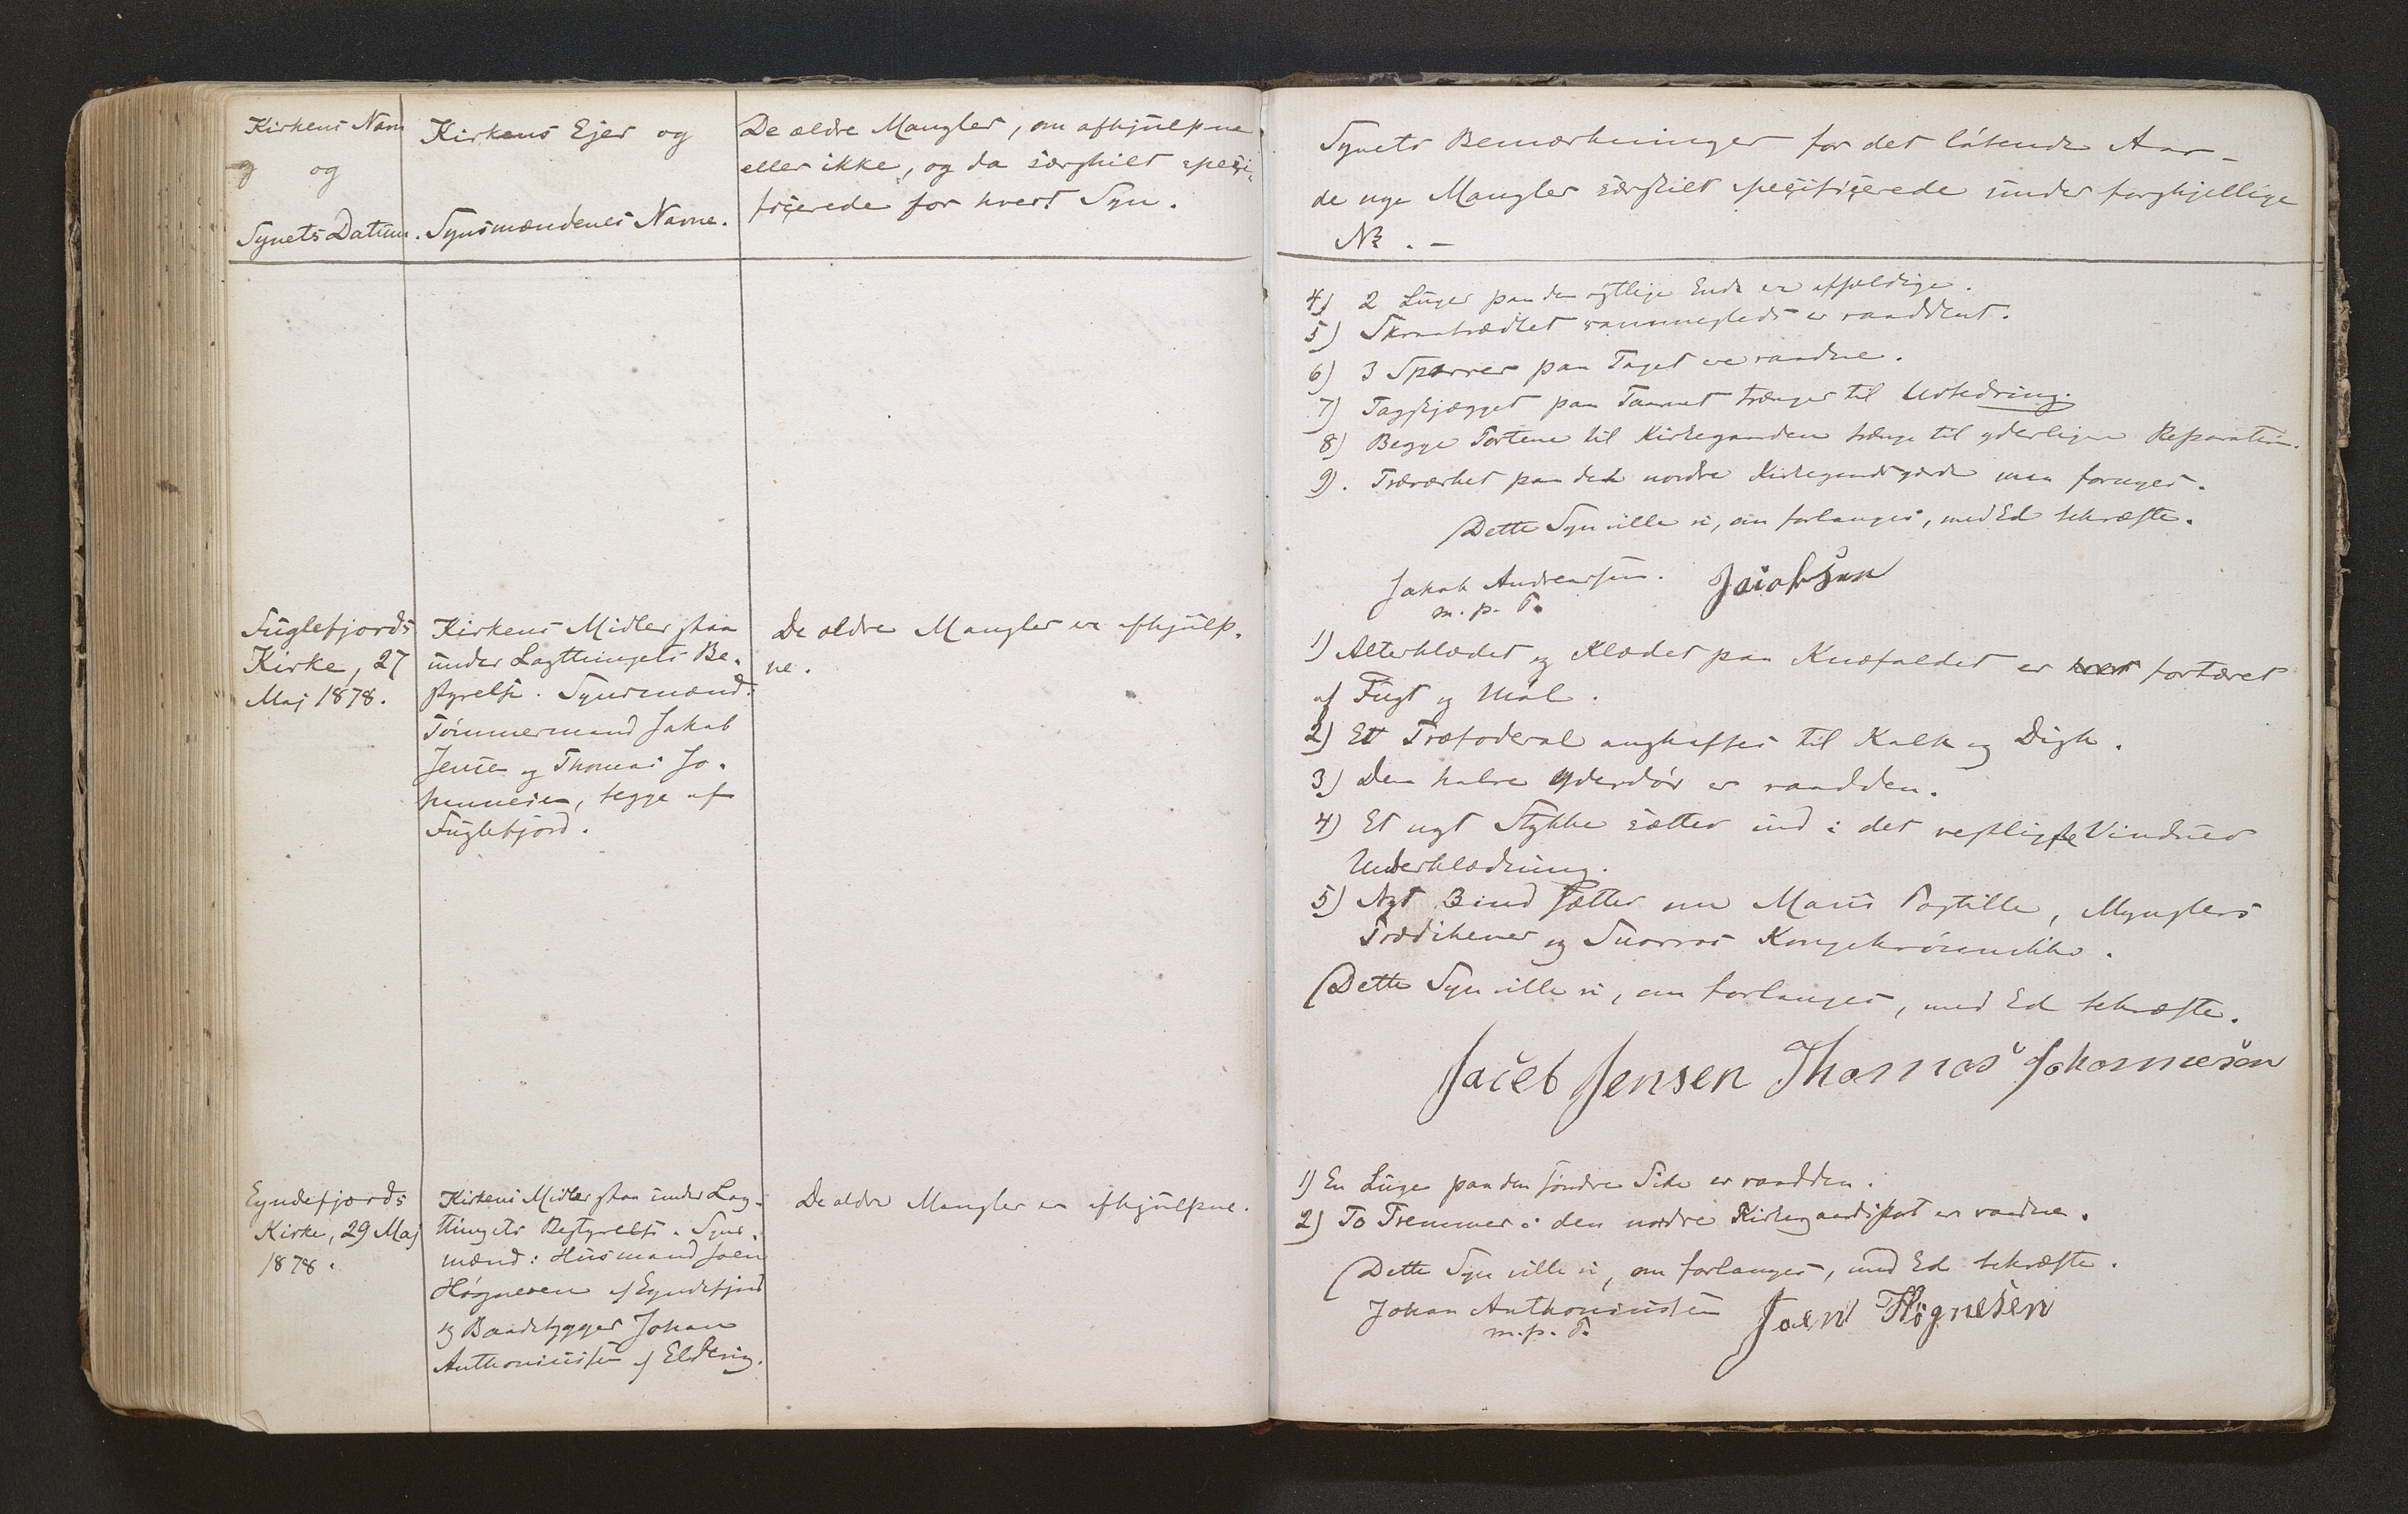 Kirkens Navn
og
Synets Datum.
Kirkens Ejer og
Synsmændenes Navne.
De ældre Mangler, om afhjulpne
eller ikke, og da særskilt speçi-
fiçerede for hvert Syn.
Synets Bemærkninger for det løbende Aar -
de nye Mangler særskilt speçifiçerede under forskjellige
No. -
4) 2 Luger paa den østlige Ende er affældige.
5) Skraabrædtet er raaddent.
6) 3 Sparrer paa Taget ere raadne.
7) Tagskjægget paa Taarnet trænger til Udbedring.
8) Begge Portene til Kirkegaarden trænge til yderligere Reparation.
9). Træværket paa det nordre Kirkegaardsgjerde maa fornyes.
Dette Syn ville vi, om forlanges, med Ed bekræfte.
Jakob Andreassen. Jacobsen
m. p. P.
Fuglefjords
Kirke, 27
Maj 1878.
Kirkens Midler staa
under Lagthingets Be-
styrelse. Synsmænd:
Tømmermand Jakob
Jensen og Thomas Jo-
hannesen, begge af
Fuglefjord.
De ældre Mangler er afhjulp-
ne.
1) Alterklædet og Klædet paa Knæfaldet er fortæret
af Fugt og Møl.
2) Et Træfoderal anskaffes til Kalk og Disk.
3) Den halve Yderdør er raadden.
4) Et nyt Stykke sættes ind i det vestligste Vindues
Underklædning.
5) Nyt Bind sættes om Maus Postille, Mynsters
Prædikener og Snorros Kongekrønnike.
Dette Syn ville vi, om forlanges, med Ed bekræfte.
Jacob Jensen Thomas Johannesen
Eyndefjords
Kirke, 29 Maj
1878.
Kirkens Midler staa under Lag-
thingets Bestyrelse. Syns-
mænd: Husmand Joen
Høgnesen af Eyndefjord
og Baadebygger Johan
Anthoniussen af Eldevig.
De ældre Mangler er afhjulpne.
1) En Luge paa den søndre Side er raadden.
2) To Tremmer i den nordre Kirkegaardsport er raadne.
Dette Syn ville vi, om forlanges, med Ed bekræfte.
Johan Anthoniussen Joen Høgnesen
m. p. P.